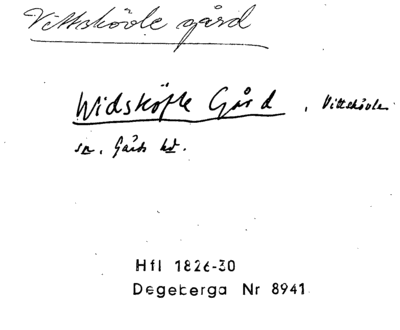 Vittskövle gård
Widsköfle Gård, Vittskövle
sn, Gärds hd.
Hfl 1826-30
Degeberga Nr 8941